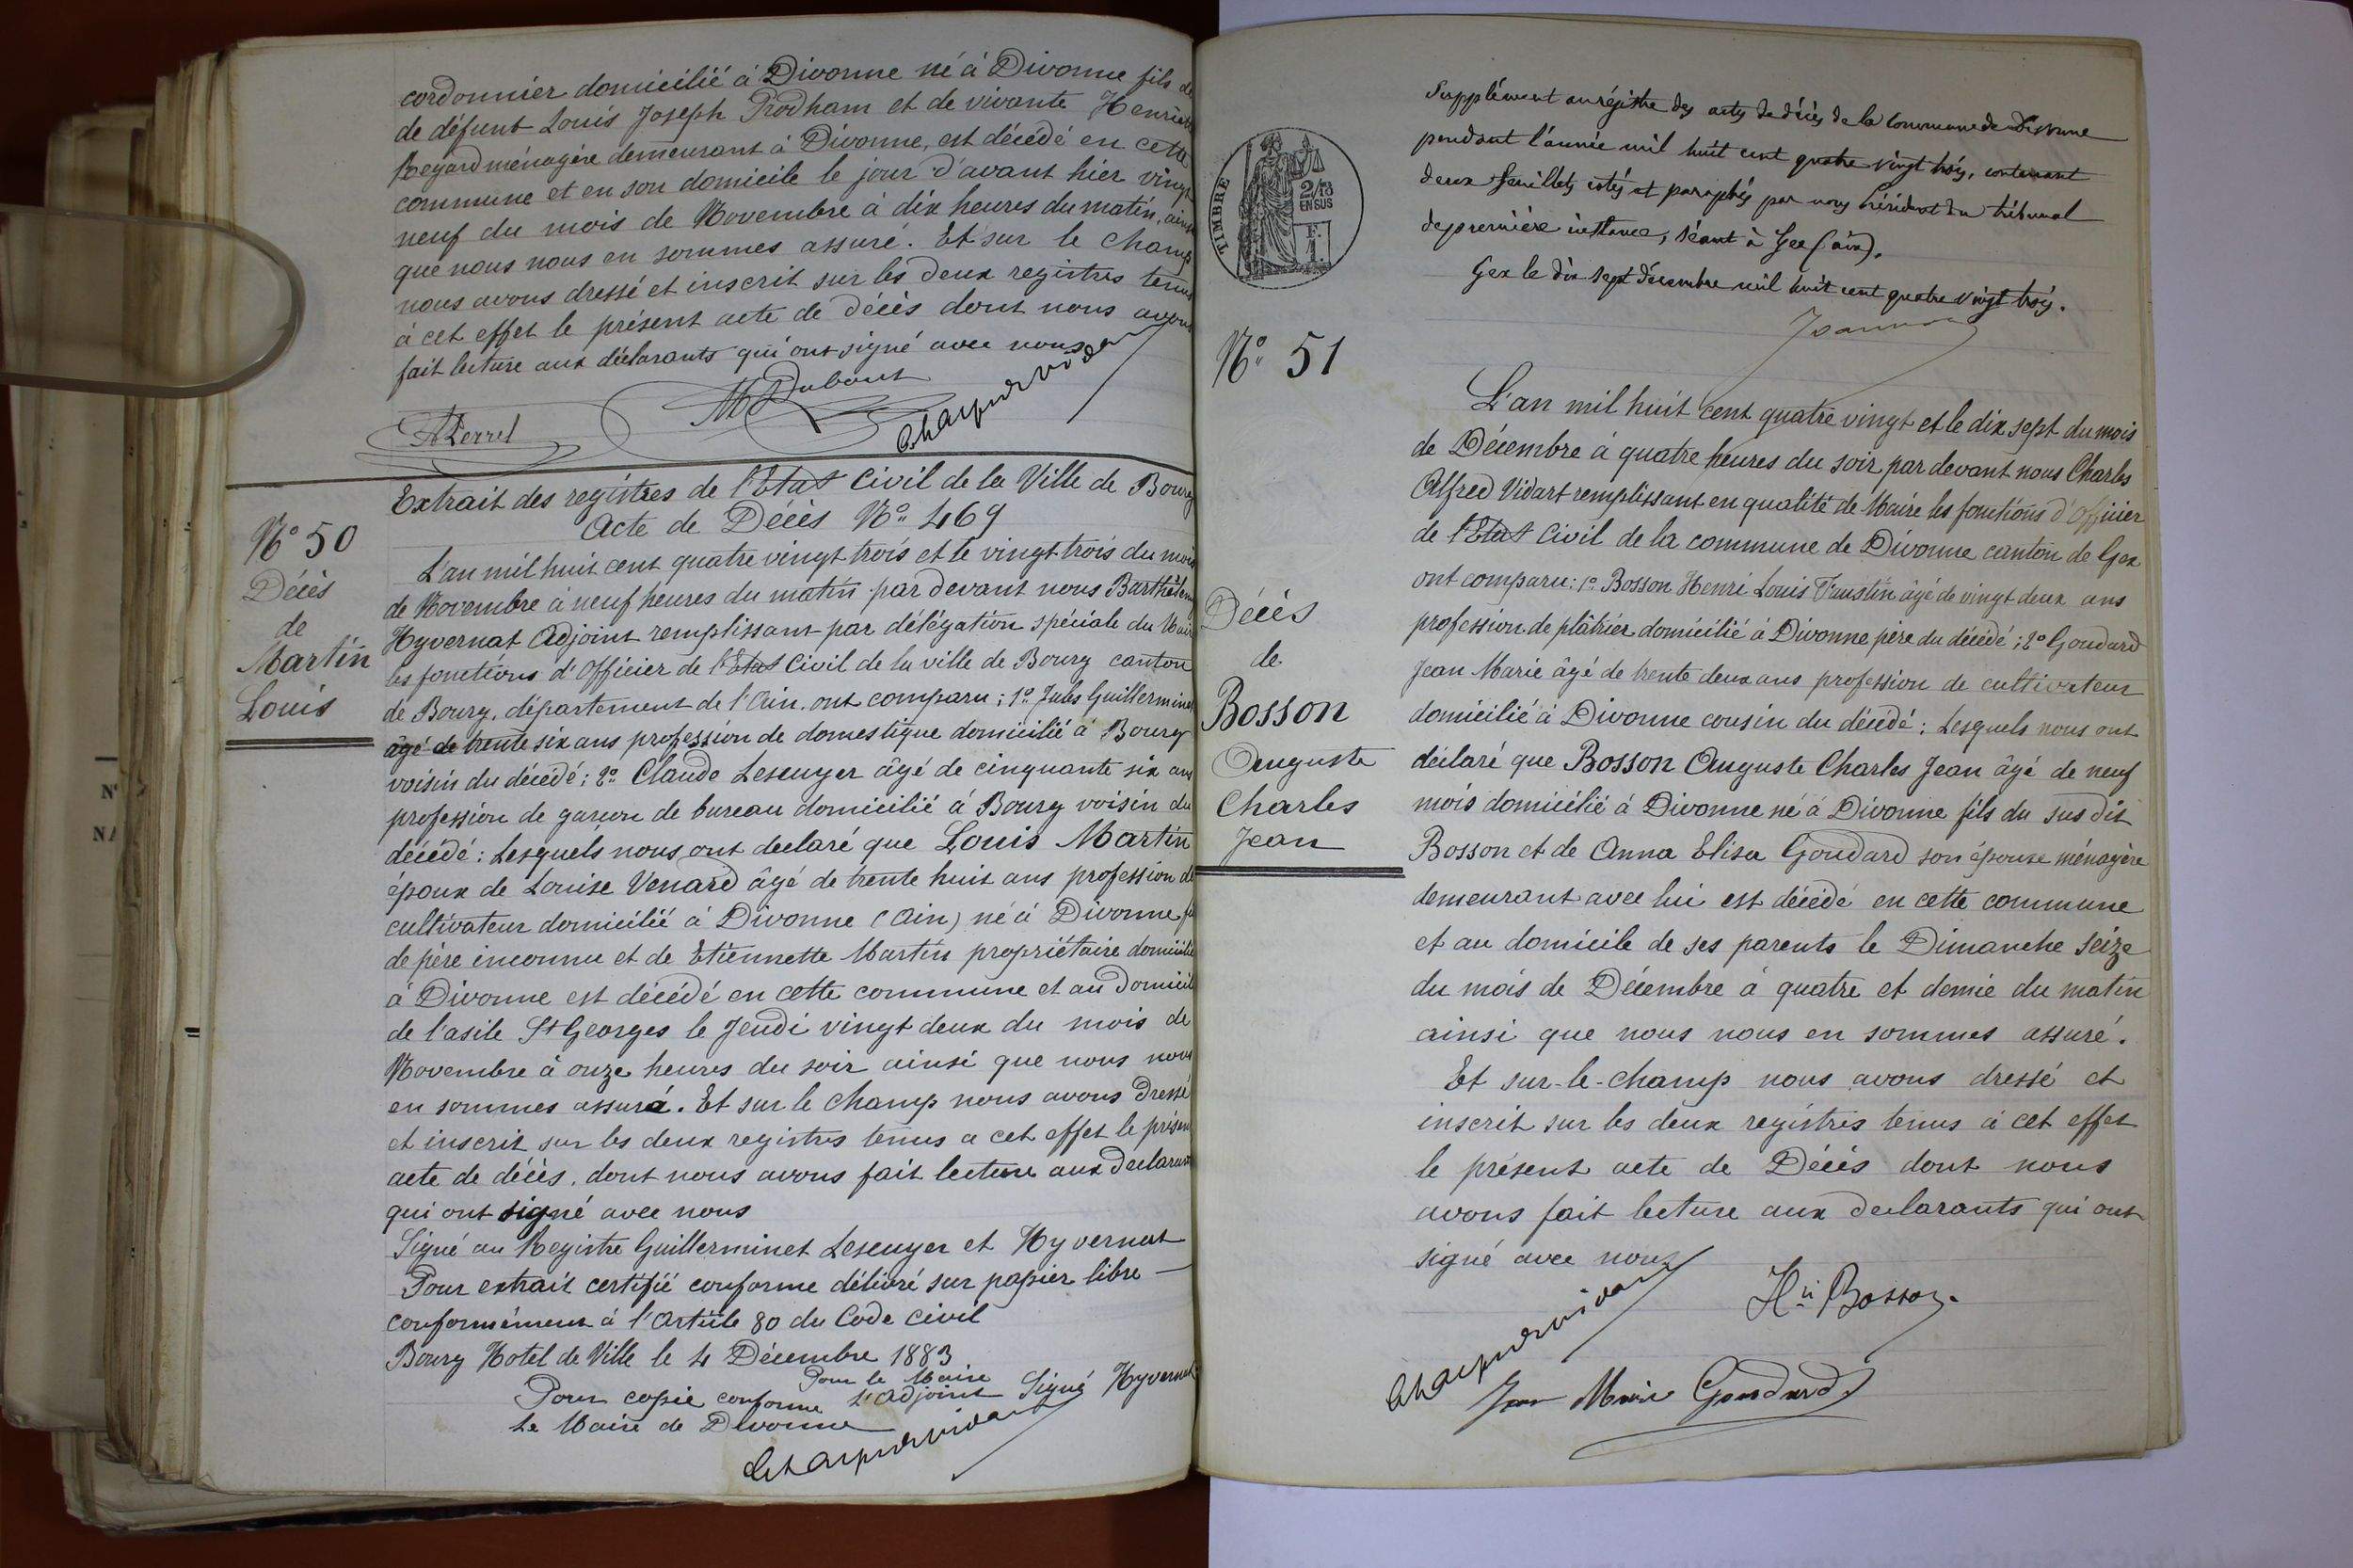 cordonnier domicilié à Divonne né à Divonne fils de
de défunt Louis Joseph Prodham et de vivante Henriette
Regard ménagère demeurant à Divonne, est décédé en cette
commune et en son domicile le jour d'avant hier vingt
neuf du mois de Novembre à dix heures du matin, ainsi
que nous nous en sommes assuré. Et sur le champ
nous avons dressé et inscrit sur les deux registres tenus
à cet effet le présent acte de décès dont nous avons
fait lecture aux déclarants qui ont signé avec nous
MDubout
APerrel
Extrait des registres de l'Etat Civil de la Ville de Bourg
Acte de Décès No 469
No 50
Décès
de
Martin
Louis
L'an mil huit cent quatre vingt trois et le vingt trois du mois
de Novembre à neuf heures du matin par devant nous Barthélemy
Hyvernat Adjoint remplissant par délégation spéciale du Maire
les fonctions d'Officier de l'Etat Civil de la ville de Bourg canton
de Bourg, département de l'Ain, ont comparu; 1o Jules Guillerminet
âgé de trente six ans profession de domestique domicilié à Bourg
voisin du décédé; 2o Claude Lescuyer âgé de cinquante six ans
profession de garçon de bureau domicilié à Bourg voisin du
décédé: Lesquels nous ont declaré que Louis Martin
époux de Louise Venard âgé de trente huit ans profession de
cultivateur domicilié à Divonne (Ain) né à Divonne fils
de père inconnu et de Etiennette Martin propriétaire domiciliée
à Divonne est décédé en cette commune et au domicile
de l'asile St Georges le Jeudi vingt deux du mois de
Novembre à onze heures du soir ainsi que nous nous
en sommes assuré. Et sur le champ nous avons dressé
et inscrit sur les deux registres tenus a cet effet le présent
acte de décès, dont nous avons fait lecture aux declarants
qui ont signé avec nous
Signé au Registre Guillerminet Lescuyer et Hyvernat
Pour extrait certifié conforme délivré sur papier libre
conformément à l'Article 80 du Code Civil
Bourg Hotel de Ville le 4 Décembre 1883
Pour le Maire
L'Adjoint Signé Hyvernat
Pour copie conforme
Le Maire de Divonne
Supplément au régistre des actes de décès de la Commune de Divonne
pendant l'année mil huit cent quatre vingt trois, contenant
deux feuillets cotés et paraphés par nous Président du tribunal
de première instance, séant à Gex (ain).
Gex le dix sept décembre mil huit cent quatre vingt trois.
TIMBRE
2/10
EN SUS
No 51
Décès
de
Bosson
Auguste
Charles
Jean
L'an mil huit cent quatre vingt et le dix sept du mois
de Décembre à quatre heures du soir par devant nous Charles
Alfred Vidart remplissant en qualité de Maire les fonctions d'Officier
de l'Etat Civil de la commune de Divonne canton de Gex
ont comparu: 1o Bosson Henri Louis Faustin âgé de vingt deux ans
profession de plâtrier domicilié à Divonne père du décédé; 2o Goudard
Jean Marie âgé de trente deux ans profession de cultivateur
domicilié à Divonne cousin du décédé: Lesquels nous ont
déclaré que Bosson Auguste Charles Jean âgé de neuf
mois domicilié à Divonne né à Divonne fils du sus dit
Bosson et de Anna Elisa Goudard son épouse ménagère
demeurant avec lui est décédé en cette commune
et au domicile de ses parents le Dimanche seize
du mois de Décembre à quatre et demie du matin
ainsi que nous nous en sommes assuré.
Et sur-le-champ nous avons dressé et
inscrit sur les deux registres tenus à cet effet
le présent acte de Décès dont nous
avons fait lecture aux declarants qui ont
signé avec nous
Hri Bosson.
Jean Marie Goudard